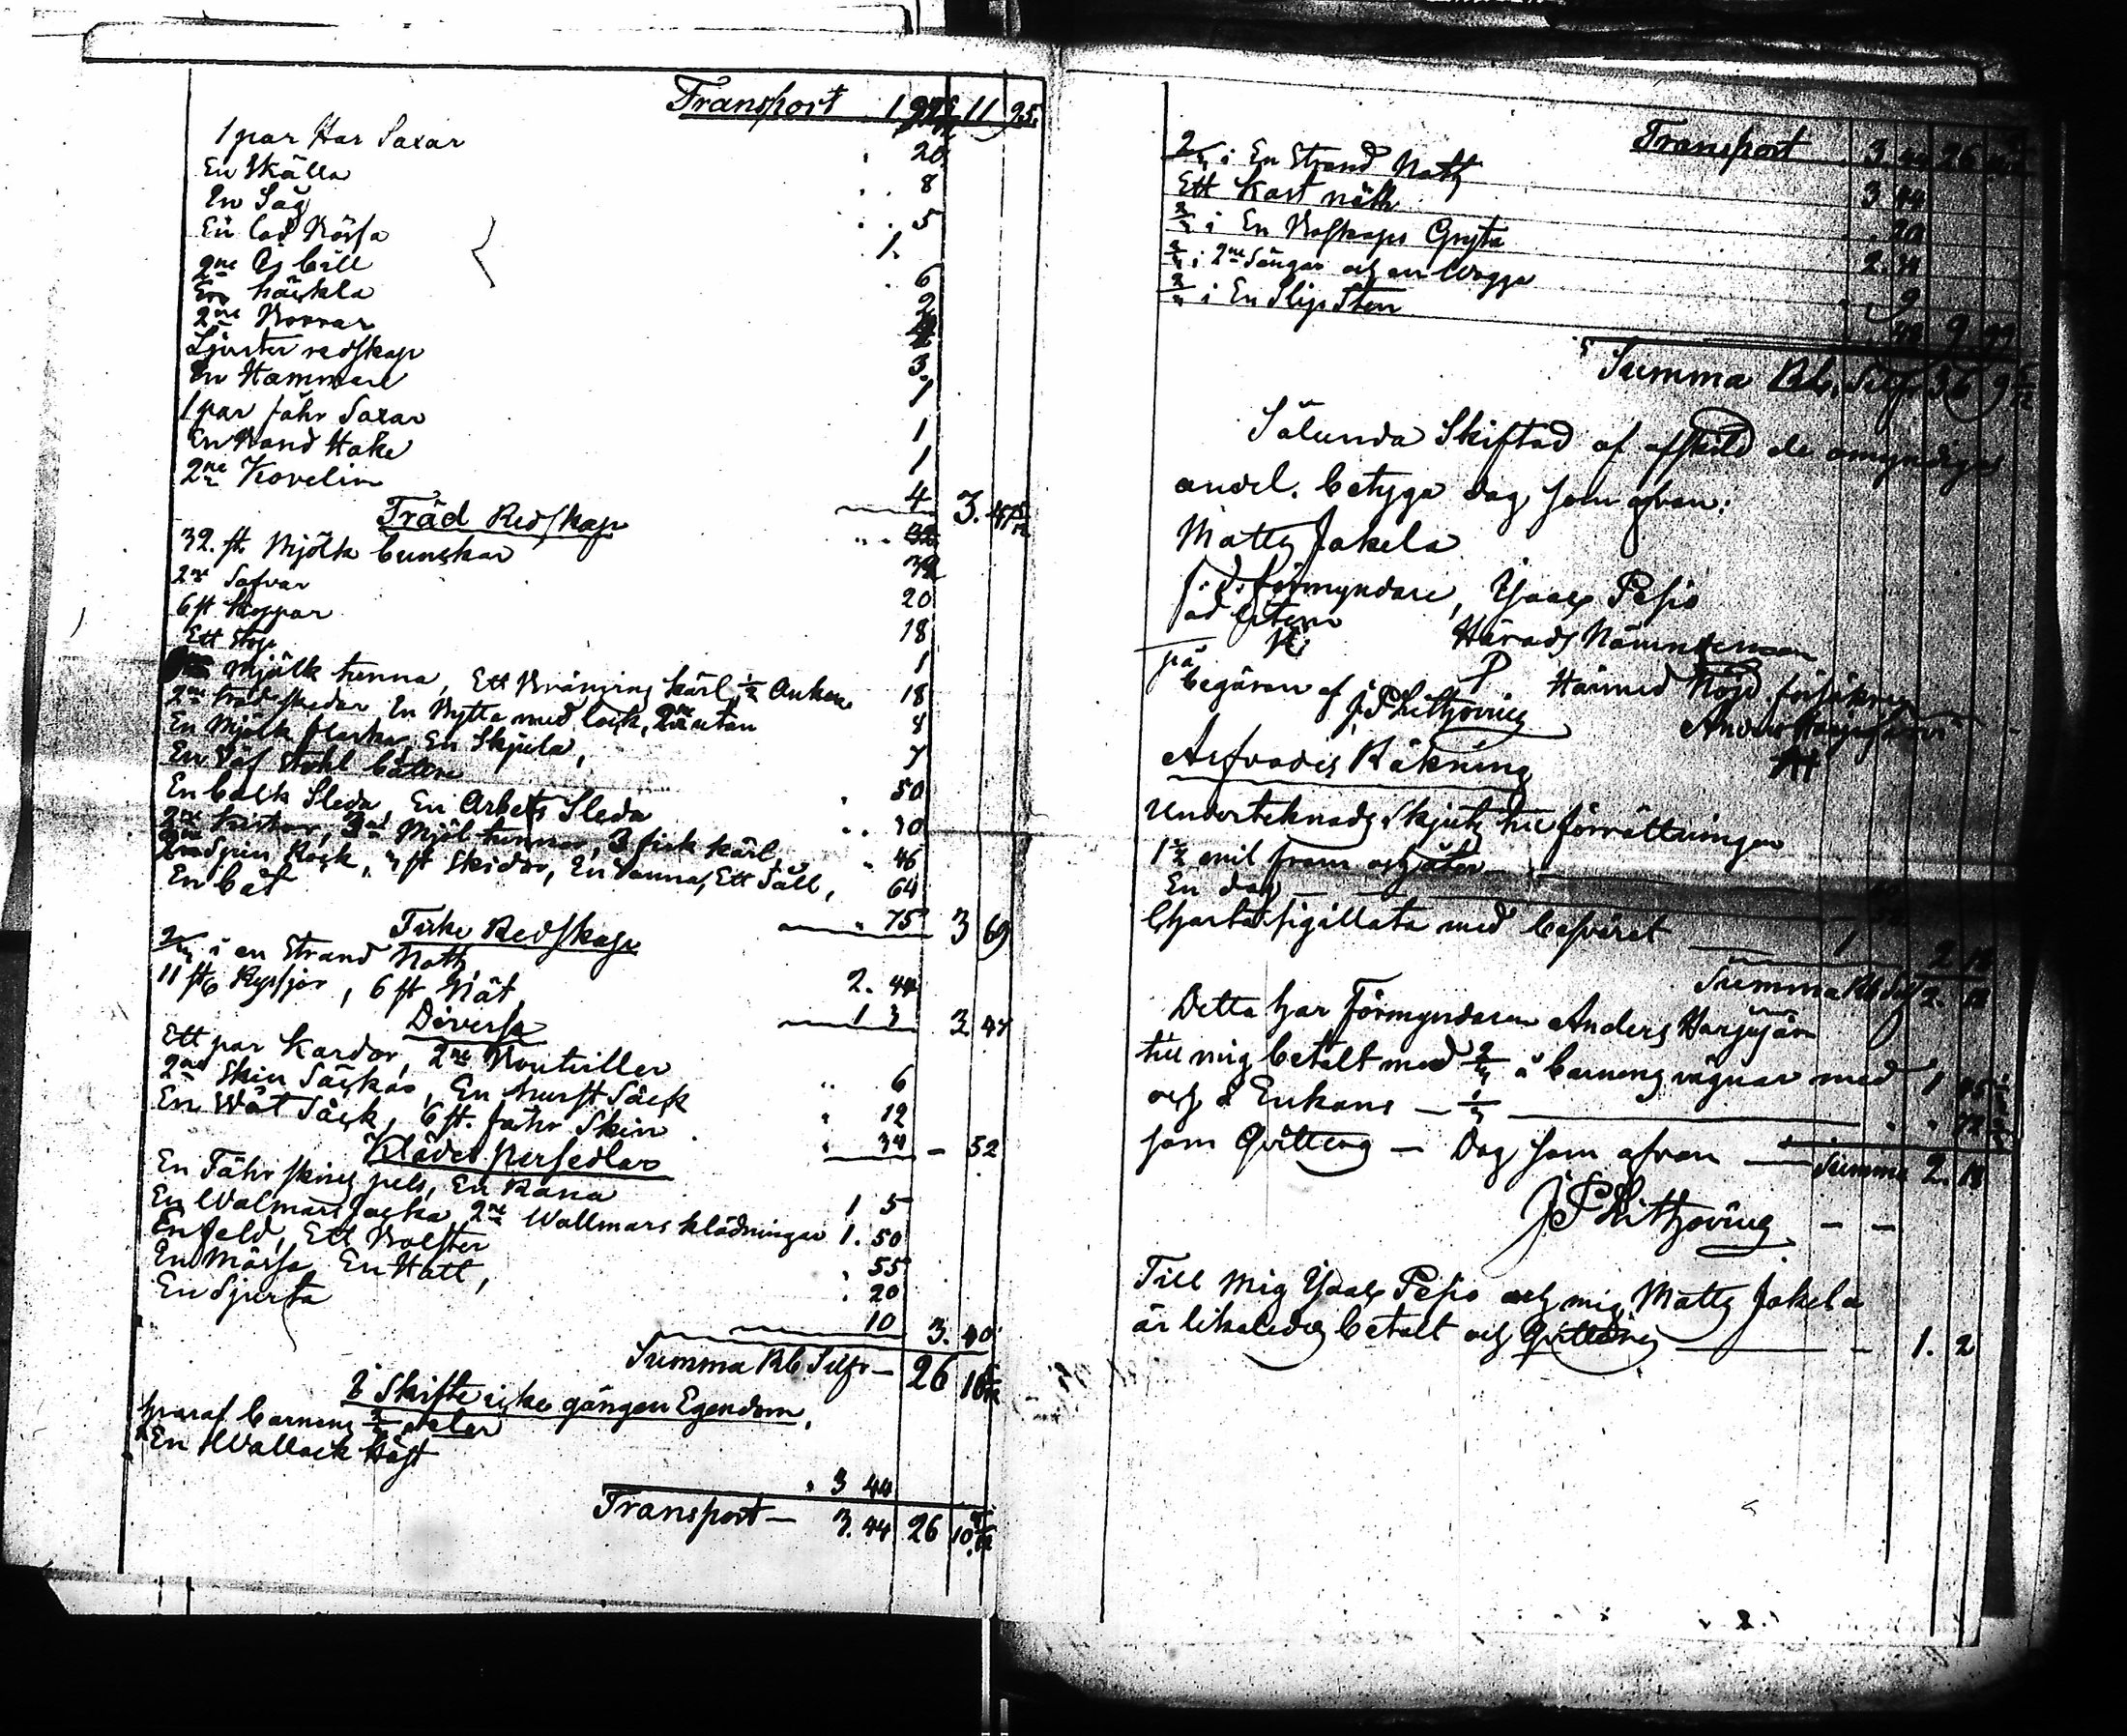 Transport 11 95
1 par Har Saxar 20
En Skälla 8
En Såg 5
En lod Bössa 1.
2ne Åsbill 6
En häckla 2
2ne Borrar
Ljuster redskap 3
En Hammare 1
1 par fåhr Saxar 1
En Band Hake 1
2ne Kovelin 4 3.
Träd Redskap
32. st. Mjölk bunckar 32
2ne Safvar 20
6 st Koppar 18
Ett Stop 1
Mjölk tunna, Ett Bränings kärl, ½ Ankare 18
2ne Träd skedar En Bytta med lock, 2ne utan 8
En Mjölk flaska, En Skjula, 7
En Väf Stohl bättre 50
En back Sleda, En Arbets Sleda 30
2ne Kistor, 3ne Mjöl tunnor, 3 fisk kärl, 46
spin Rock, st Skidor, En Vanna, Ett Såll, 64
En båt 75 3 69
Fiske Redskap
2/3 i en Strand Noth 2. 44
11 st Ryssjor, 6 st Nät, 1 3 3. 47
Diverse
Ett par Kardor, 2ne Boutviller 6
2ne Skin Säckar, En hurst Säck 12
En Wåt Säck, 6 st. fåhr Skin 34 - 52
Klädes persedlar
En Fåhr skins pels, En Rana 1 5
En Walmars Jacka 2ne Wallmars klädningar 1. 50
En feld, Ett Bolster 55
En Mössa En Hatt, 20
En Sjurta 10 3. 40
Summa Rb Silfr - 26
I Skifte icke gången Egendom,
hvaraf barnens 2/3 delar
En Wallack Häst 3 44
Transport - 3. 44 26 10
Transport 3 44 26
2/3 i En Strand Noth 3 44
Ett Kast näth 20
2/3 i En Boskaps Gryta 2. 14
2/3 i 2ne Sängar och en Wagga 9
2/3 i En Slip Sten 48 9 99
Summa Rb. Silfr 36 9
Sålunda Skiftad af afskild de omyndiges
andel. betyga dag som ofvan:
Matts Jakela
s: d: förmyndare, Isaac Pesio
ad litem Härads Nämndeman
på P Härmed Nöjd försäkrar
begäran af J P Lithovius Anders Harjujärvi
Arfvodis Räkning
Undertecknads Skjuts till förrättningen
1½ mil fram och åter
En dag
Charta sigillata med besväret 1 2 18
Summa Rb Silfr 2. 18
Detta har Förmyndaren Anders Harjujärvi
till mig betalt med 2/3 å barnens vägnar med 1 45
och å Enkans - 1/3 72
som Qvitteras - Dag som ofvan - Summa 2. 18
J P Lithovius - -
Till Mig Isaac Pesio och mig Matts Jakela
är likaledes betalt och Qvitteras - 1. 2